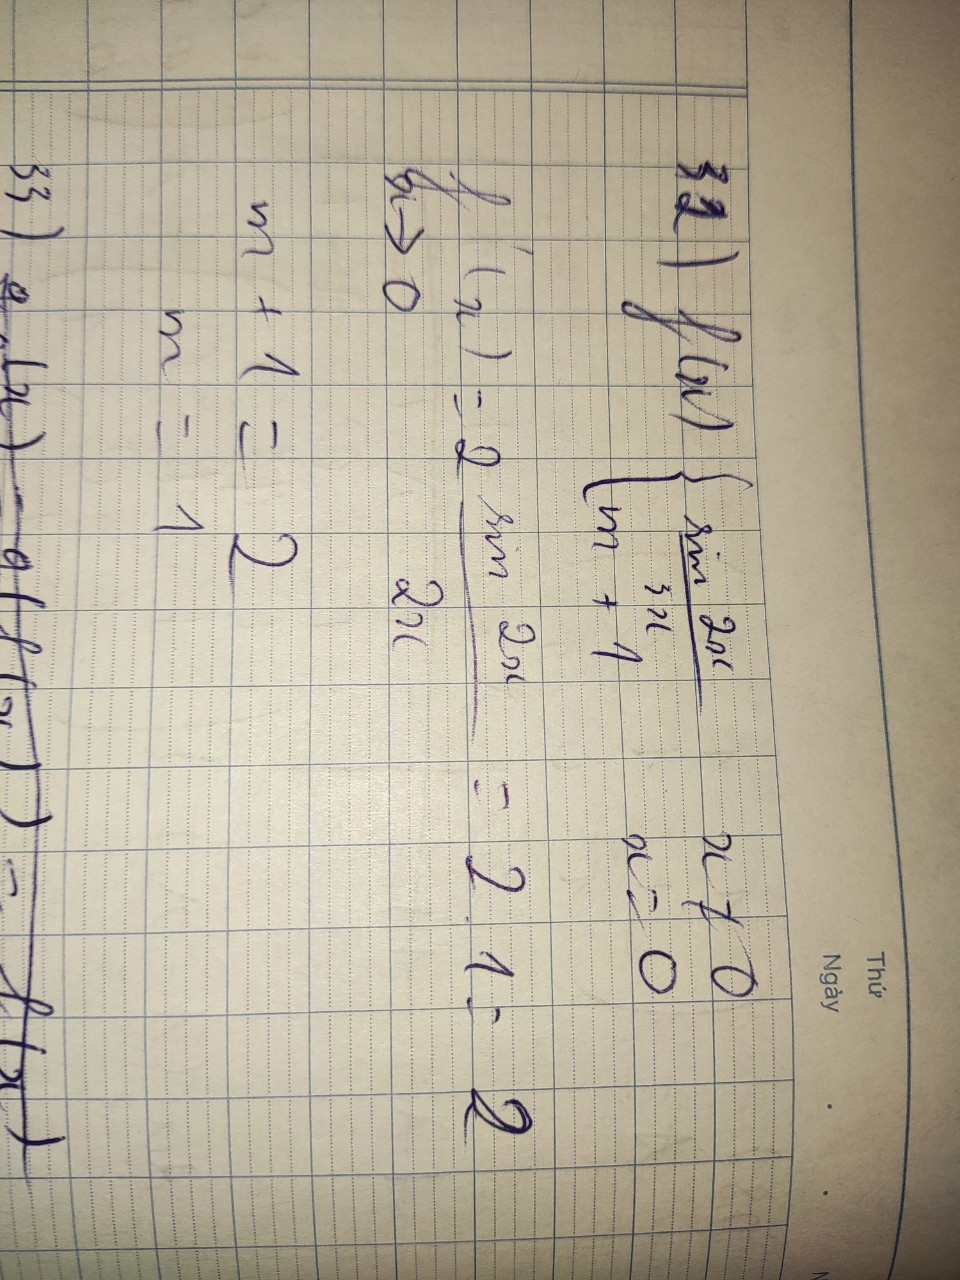 Thứ
Ngày
32) f(x) { sin 2x / 3x x ≠ 0
m + 1 x = 0
f'(x) = 2 sin 2x / 2x = 2 . 1 = 2
x → 0
m + 1 = 2
m = 1
33)